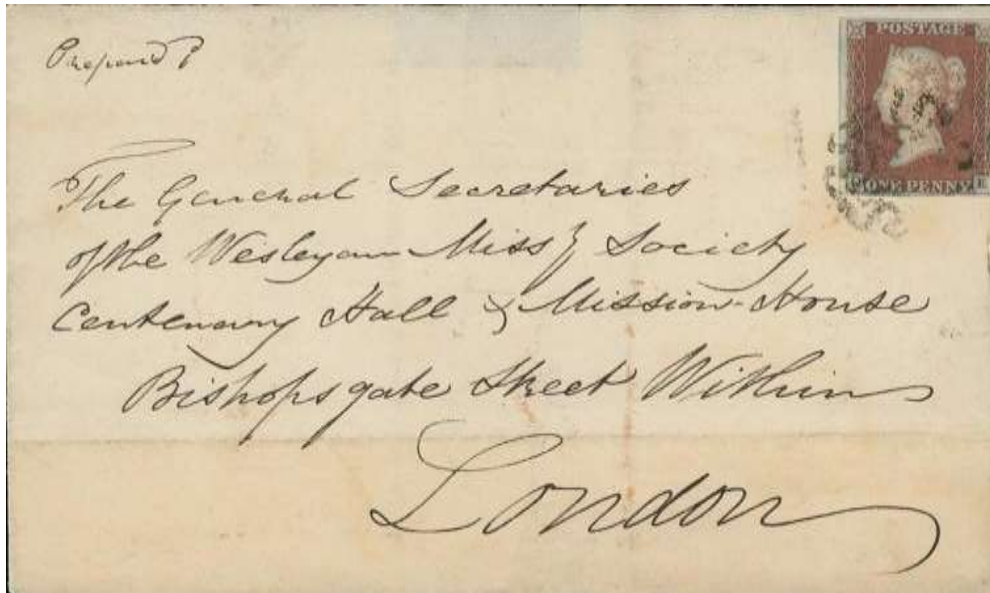 POSTAGE
ONE PENNY
The General Secretaries
of the Wesleyan Missy Society
Centenary Hall & Mission-House
Bishopsgate Street Within
London